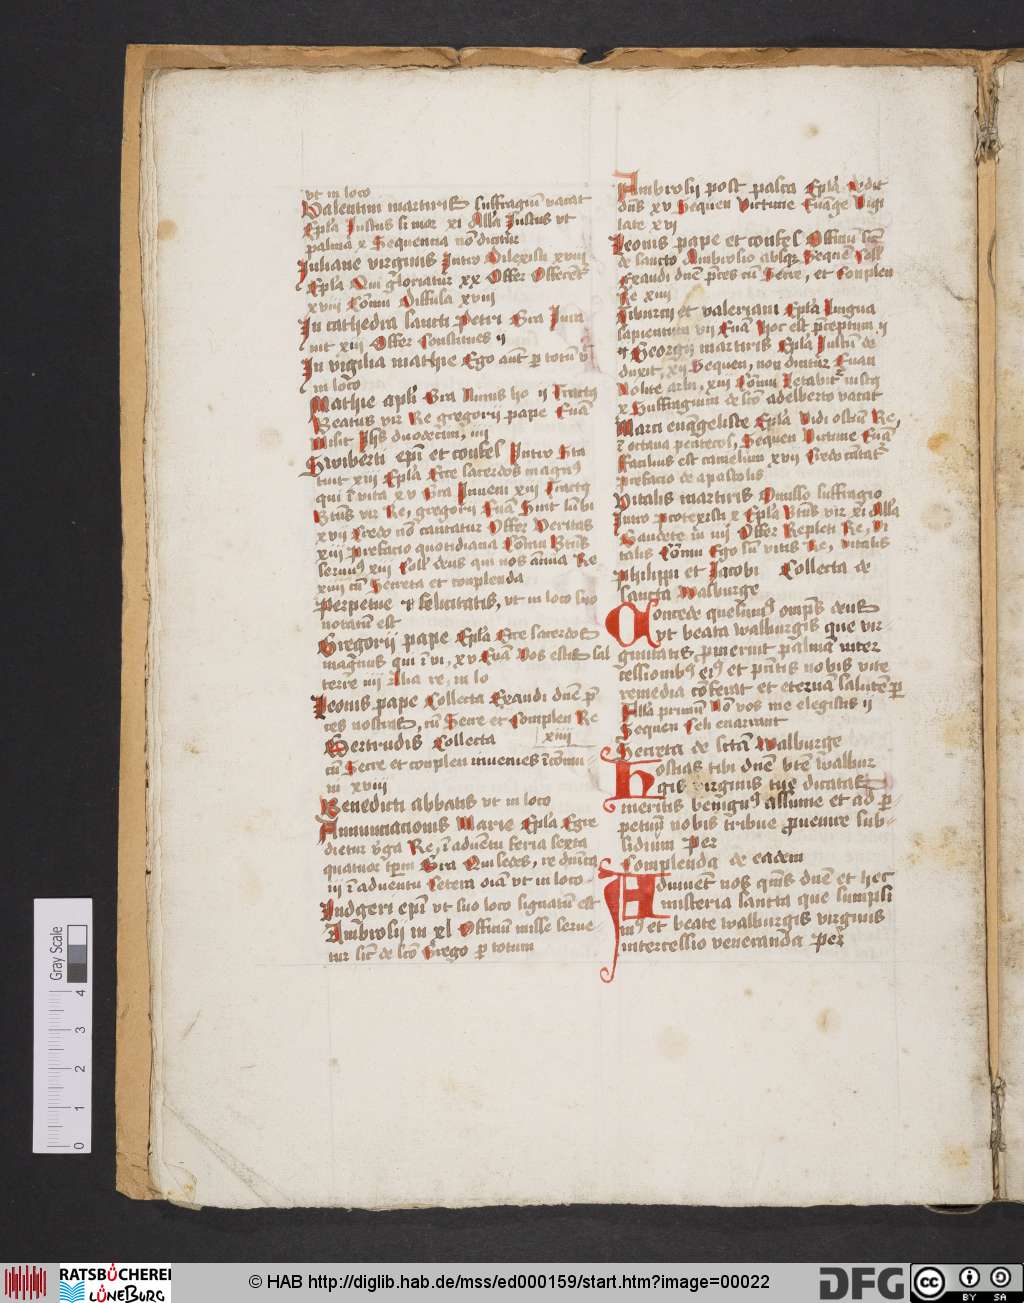 vt in loco
Valentini martiris suffragiū vacat
Epl̄a Justus si mor xi All̄a Justus vt
palma x Sequencia nō dicitur
Juliane virginis Intro Dilexisti xviii
Epl̄a Qui gloriatur xx Offer Offerētʳ
xviii Cōmu Diffusa xviii
In cathedra sancti Petri Gra Jura
uit xiii Offer Constitues ii
In vigilia mathie Ego aūt ꝑ totū vt
in loco
Mathie apl̄i Gra Nimis ho ii Tractꝰ
Beatus vir Re gregorii pape Euā
Misit Jhs duodecim, iiii
Swiberti epī et confes Intro Sta
tuit xiii Epl̄a Ecce sacerdos magnꝰ
qui ī vita xv Gra Inueni xiii Tractꝰ
Btūs vir Re, gregorii Euā Sint lūbi
xvii Credo nō cantatur Offer Veritas
xiii prefacio quotidiana Cōmu Btūs
seruuꝰ xiii Coll̄ deus qui nos annua Re
xiiii cū Secreta et conplenda
Perpetue et felicitatis, vt in loco suo
notatū est
Gregorii pape Epl̄a Ecce sacerdos
magnus qui ī vi, xv Euā Vos estis sal
terre iiii Alia re, in lo
Leonis pape Collecta Exaudi dn̄e p̄
ces nostras, cū Secre et Complen Re
Gertrudis Collecta xiiii
cū Secre et conplen inuenies ī cōmu
ni xviii
Benedicti abbatis vt in loco
Annunciacionis Marie Epl̄a Egre
dietur v̄ga Re, ī aduentu feria sexta
quatuor tꝑm Gra Qui sedes, re dn̄ica
iii ī aduentu Cetera oīa vt in loco
Ludgeri epī vt suo loco signatū est
Ambrosii in xl Officiū misse serue-
tur sic̄ de sc̄o Grego ꝑ totum
Ambrosii post pasca Epl̄a Audit
dn̄s xv Sequen Victime Euāge Vigi
late xvi
Leonis pape et confes Officiū sic̄
de sancto Ambrosio absqꝫ Sequēc̄ Coll̄
Exaudi dn̄e p̄ces cū Secre, et Conplen
Re xiiii
Tiburcii et valeriani Epl̄a Lingua
sapientum vii Euā Hoc est p̄ceptum ii
Georgii martiris Epl̄a Justū de
duxit, xii Sequen, non dicitur Euan
Nolite arbi, xiii Cōmu Letabitʳ iustꝰ
x Suffragium de sc̄o adelberto vacat
Marci euāngeliste Epl̄a Vidi ostiū Re,
ī octaua pentecos, Sequen Victime Euā
Facilius est camelum xvii Credo cātatʳ
prefacio de apostolis
Vitalis martiris Omisso suffragio
Intro Protexisti x Epl̄a Btūs vir xi All̄a
Gaudete in iiii Offer Repleti Re, Vi
talis Cōmu Ego sū vitis Re, Vitalis
Philippi et Jacobi Collecta de
sancta Walburge
Concede quesumꝰ omps̄ deus
vt beata walburgis que vir-
ginitatis ꝓmeruit palmā inter
cessionibꝰ eiꝰ et p̄ntis nobis vite
remedia cōferat et eternā salutē ꝑ
All̄a primū Non vos me elegistis ii
Sequen Celi enarrant
Secreta de sctā Walburge
Hostias tibi dn̄e bt̄e walbur
gis virginis tue dicatas
meritis benignꝰ assume et ad ꝑ-
petuū nobis tribue ꝓuenire sub-
sidium Per
Complenda de eadem
Adiuuēt nos qs̄ms dn̄e et hec
misteria sancta que sumpsi
mꝰ et beate walburgis virginis
intercessio veneranda Per
Gray Scale
0 1 2 3 4
RATSBÜCHEREI
LÜNEBURG
© HAB http://diglib.hab.de/mss/ed000159/start.htm?image=00022
DFG
cc BY SA